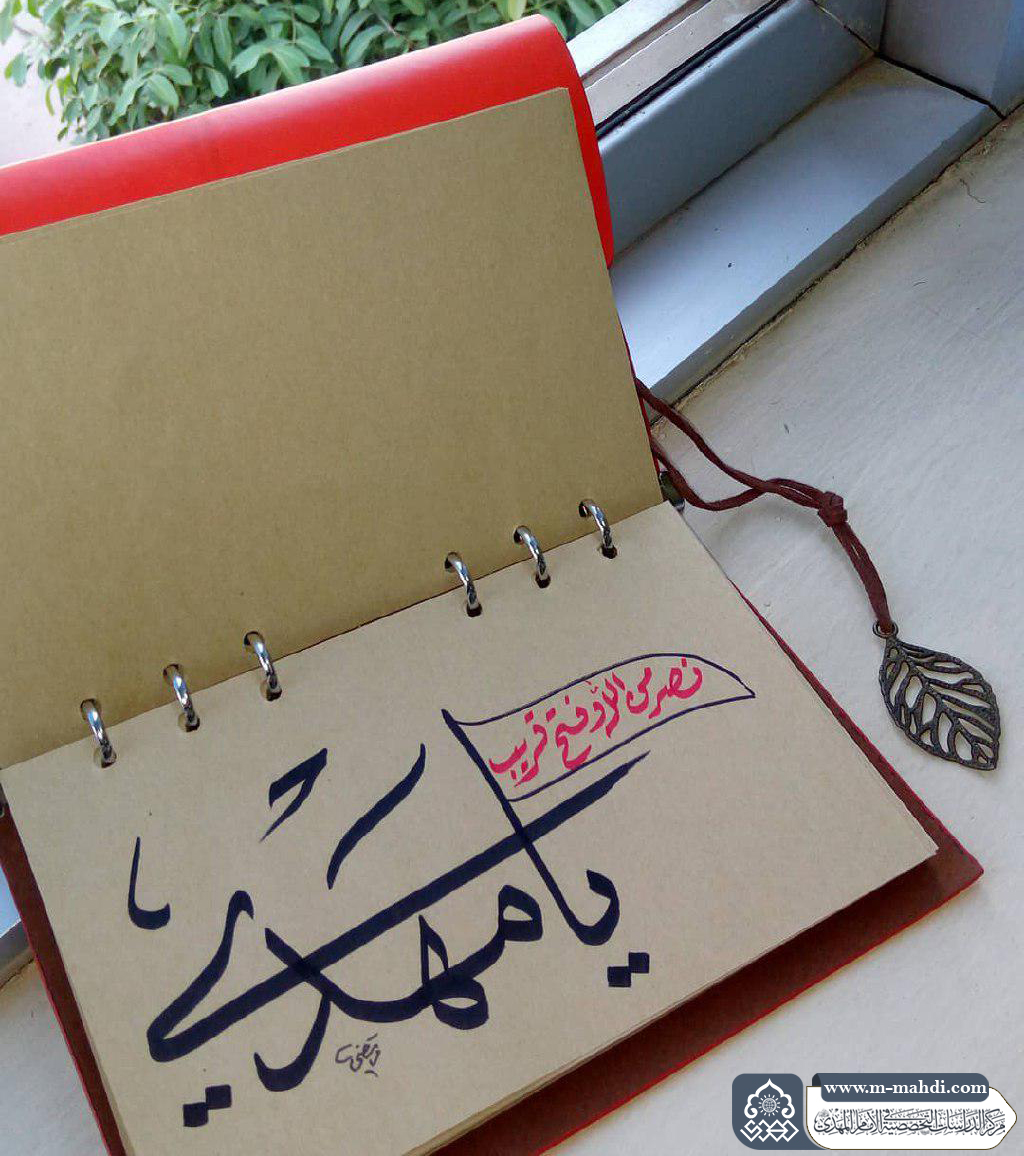 نصر من الله وفتح قريب
يا مهدي
www.m-mahdi.com
مركز الدراسات التخصصية في الإمام المهدي